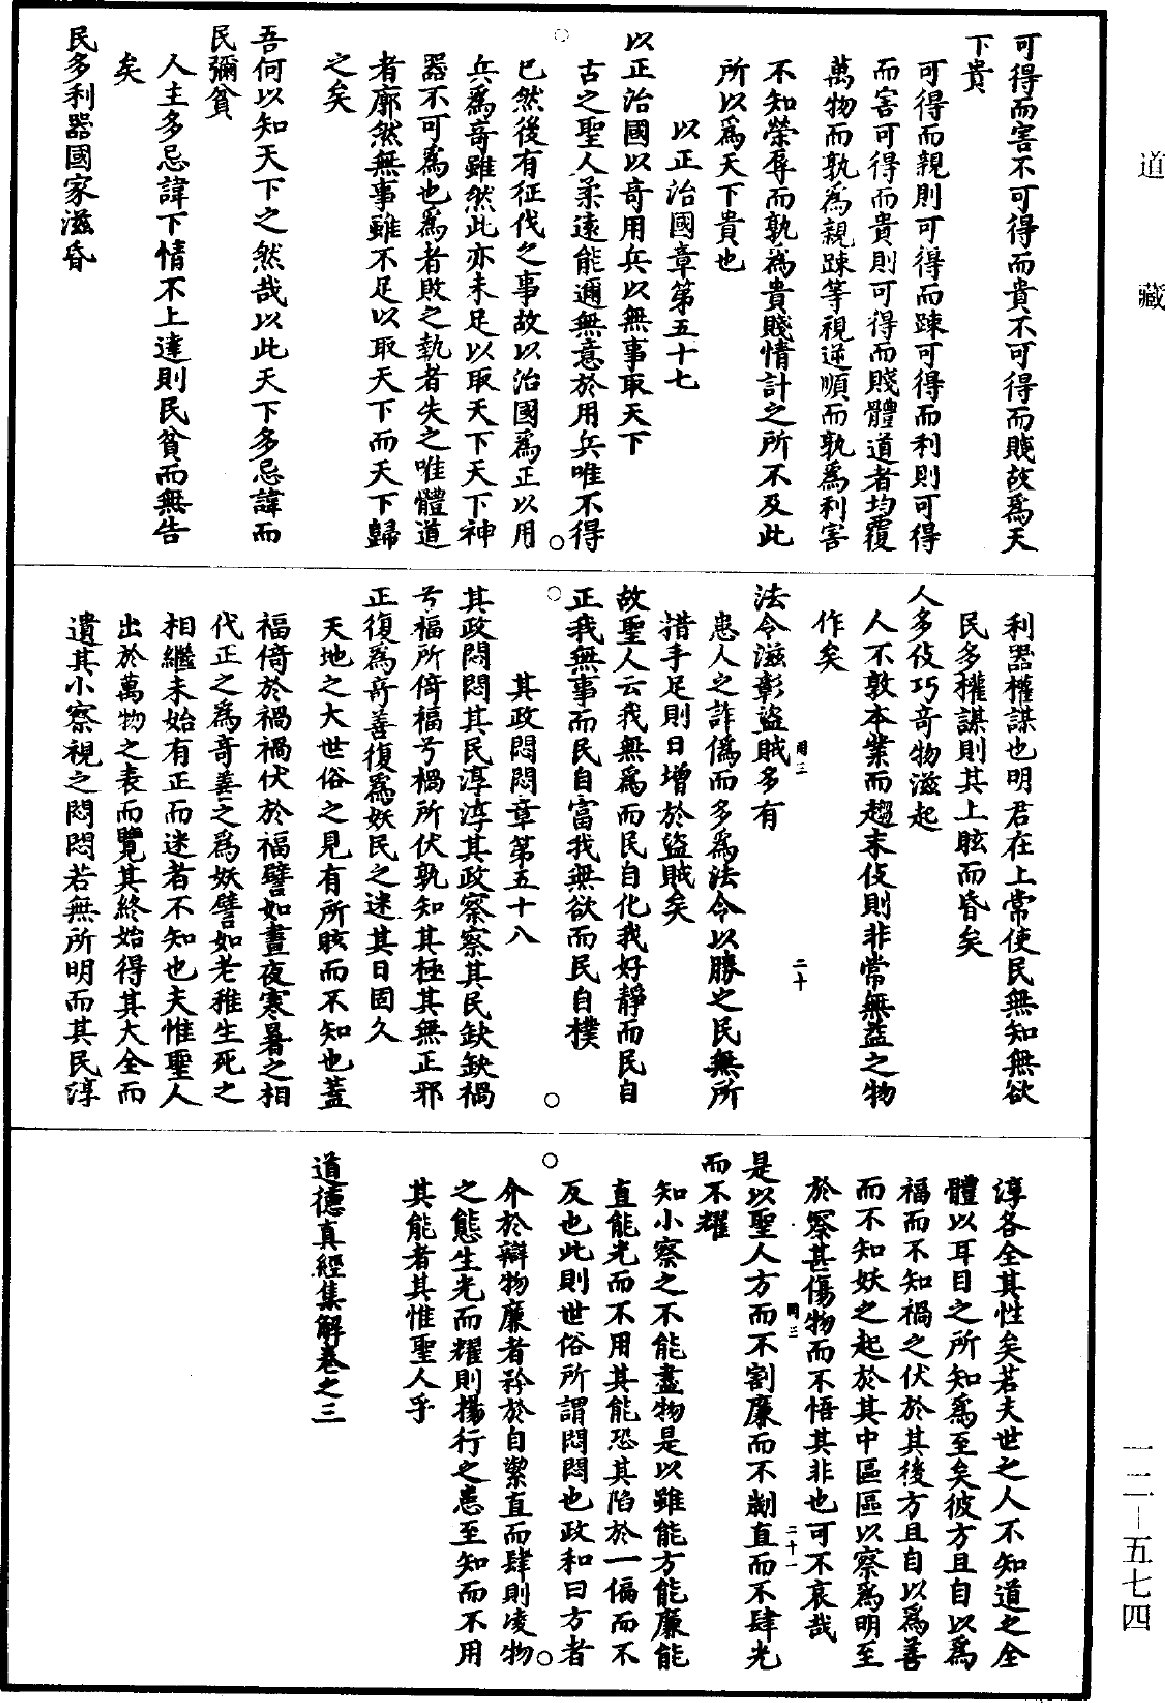 道藏
可得而害不可得而貴不可得而賤故爲天
下貴
可得而親則可得而踈可得而利則可得
而害可得而貴則可得而賤體道者均覆
萬物而孰爲親踈等視逆順而孰爲利害
不知榮辱而孰爲貴賤情計之所不及此
所以爲天下貴也
以正治國章第五十七
以正治國以奇用兵以無事取天下
古之聖人柔遠能邇無意於用兵唯不得
已然後有征伐之事故以治國爲正以用
兵爲奇雖然此亦未足以取天下天下神
器不可爲也爲者敗之執者失之唯體道
者廓然無事雖不足以取天下而天下歸
之矣
吾何以知天下之然哉以此天下多忌諱而
民彌貧
人主多忌諱下情不上達則民貧而無告
矣
民多利器國家滋昏
利器權謀也明君在上常使民無知無欲
民多權謀則其上眩而昏矣
人多伎巧奇物滋起
人不敦本業而趨末伎則非常無益之物
作矣
法令滋彰盜賊多有
患人之詐僞而多爲法令以勝之民無所
措手足則日增於盜賊矣
故聖人云我無爲而民自化我好靜而民自
正我無事而民自富我無欲而民自樸
其政悶悶章第五十八
其政悶悶其民淳淳其政察察其民缺缺禍
兮福所倚福兮禍所伏孰知其極其無正邪
正復爲奇善復爲妖民之迷其日固久
天地之大世俗之見有所眩而不知也蓋
福倚於禍禍伏於福譬如晝夜寒暑之相
代正之爲奇善之爲妖譬如老稚生死之
相繼未始有正而迷者不知也夫惟聖人
出於萬物之表而覽其終始得其大全而
遺其小察視之悶悶若無所明而其民淳
淳各全其性矣若夫世之人不知道之全
體以耳目之所知爲至矣彼方且自以爲
福而不知禍之伏於其後方且自以爲善
而不知妖之起於其中區區以察爲明至
於察甚傷物而不悟其非也可不哀哉
是以聖人方而不割廉而不劌直而不肆光
而不耀
知小察之不能盡物是以雖能方能廉能
直能光而不用其能恐其陷於一偏而不
反也此則世俗所謂悶悶也政和曰方者
介於辯物廉者矜於自潔直而肆則凌物
之態生光而耀則揚行之患至知而不用
其能者其惟聖人乎
道德真經集解卷之三
一二—五七四